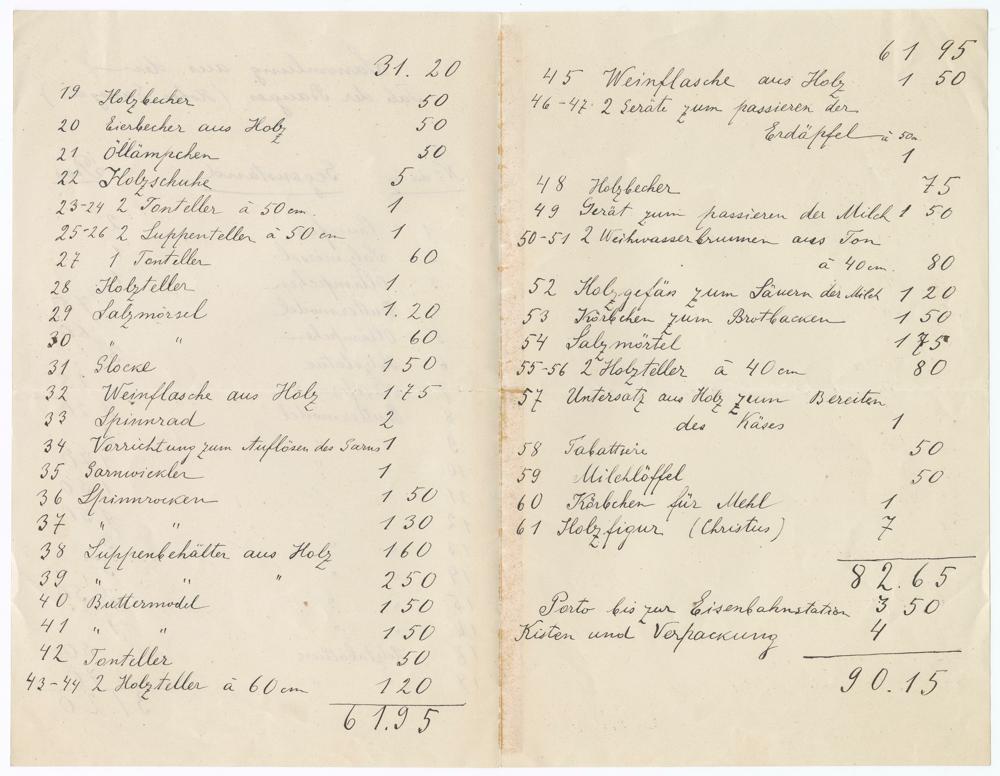 31.20
19 Holzbecher 50
20 Eierbecher aus Holz 50
21 Öllämpchen 50
22 Holzschuhe 5
23-24 2 Tonteller à 50 cm. 1
25-26 2 Suppenteller à 50 cm 1
27 1 Tonteller 60
28 Holzteller 1.
29 Salzmörsel 1.20
30 " " 60
31 Glocke 1 50
32 Weinflasche aus Holz 1 75
33 Spinnrad 2
34 Vorrichtung zum Auflösen des Garns 1
35 Garnwickler 1
36 Spinnrocken 1 50
37 " " 1 30
38 Suppenbehälter aus Holz 1 60
39 " " " 2 50
40 Buttermodel 1 50
41 " " 1 50
42 Tonteller 50
43-44 2 Holzteller à 60 cm 1 20
61.95
61 95
45 Weinflasche aus Holz 1 50
46-47. 2 Geräte zum passieren der
Erdäpfel à 50c.
1
48 Holzbecher 75
49 Gerät zum passieren der Milch 1 50
50-51 2 Weihwasserbrunnen aus Ton
à 40 cm. 80
52 Holzgefäss zum Säuern der Milch 1 20
53 Körbchen zum Brotbacken 1 50
54 Salzmörtel 1 75
55-56 2 Holzteller à 40 cm 80
57 Untersatz aus Holz zum Bereiten
des Käses 1
58 Tabattiere 50
59 Milchlöffel 50
60 Körbchen für Mehl 1
61 Holzfigur (Christus) 7
82.65
Porto bis zur Eisenbahnstation 3 50
Kisten und Verpackung 4
90.15